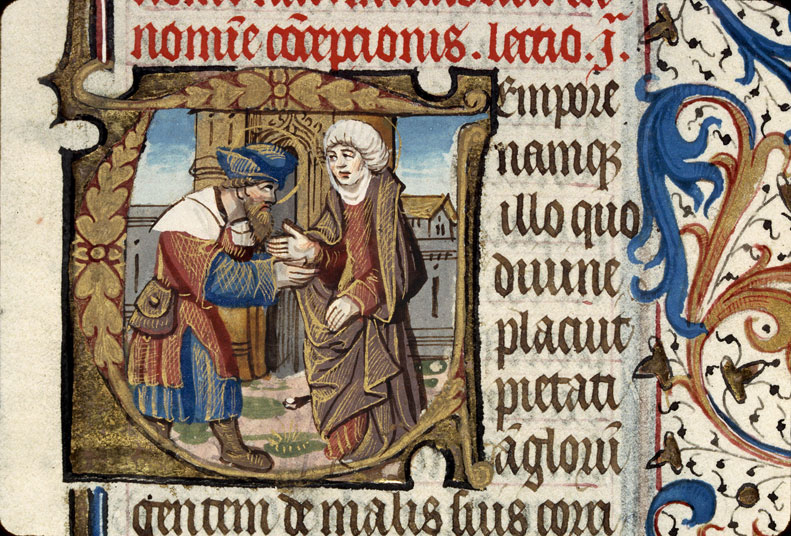 nomīe cōceptionis . lectio . j.
Empore
namqꝫ
illo quo
diuine
placuit
pietati
āgloꝝ
gentem de malis suis corri